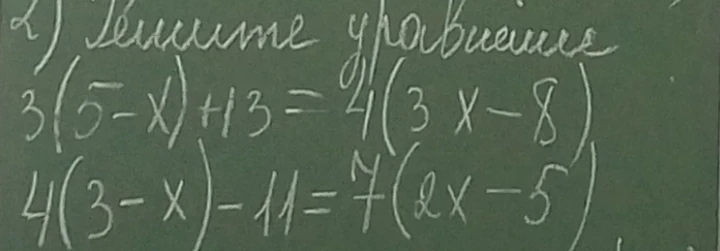 2) Решите уравнение
3(5-x)+13=4(3x-8)
4(3-x)-11=7(2x-5)